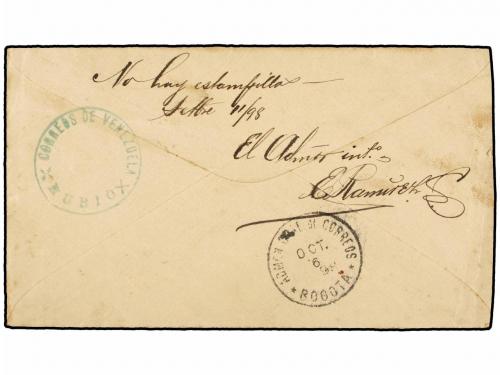 No hay estampillas
Setbre 11/98
El Admor. into.
E Ramírez
CORREOS DE VENEZUELA
RUBIO
CORREOS
OCT.
6
98
BOGOTA